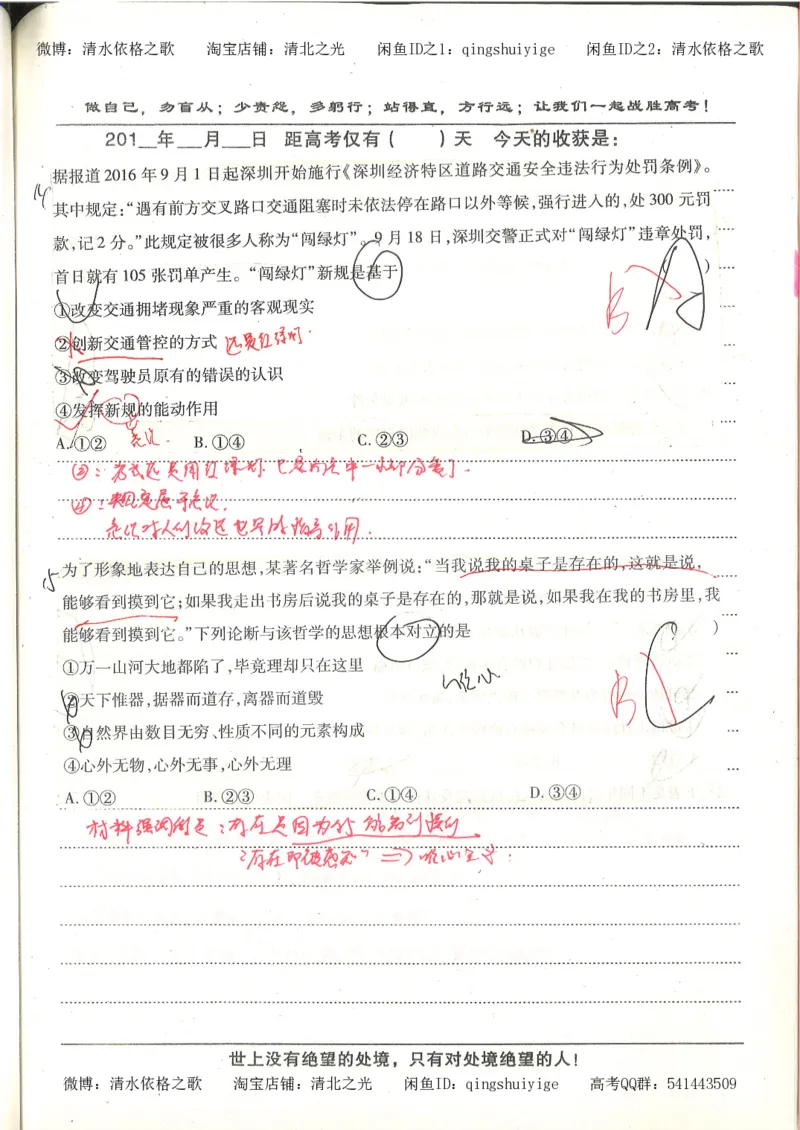 微博：清水依格之歌 淘宝店铺：清北之光 闲鱼ID之1：qingshuiyige 闲鱼ID之2：清水依格之歌
做自己，勿盲从；少责怨，多躬行；站得直，方行远；让我们一起战胜高考！
201__年___月___日 距高考仅有（ ）天 今天的收获是：
14
据报道2016年9月1日起深圳开始施行《深圳经济特区道路交通安全违法行为处罚条例》。
其中规定：“遇有前方交叉路口交通阻塞时未依法停在路口以外等候，强行进入的，处300元罚
款，记2分。”此规定被很多人称为“闯绿灯”。9月18日，深圳交警正式对“闯绿灯”违章处罚，
首日就有105张罚单产生。“闯绿灯”新规是基于 （ ）
B
①改变交通拥堵现象严重的客观现实
②创新交通管控的方式 还是红绿灯.
③改变驾驶员原有的错误的认识
④发挥新规的能动作用
A. ①② 意识. B. ①④ C. ②③ D. ③④
②：方式还是用红绿灯.
④：规定属于意识.
15
为了形象地表达自己的思想，某著名哲学家举例说：“当我说我的桌子是存在的，这就是说，
能够看到摸到它；如果我走出书房后说我的桌子是存在的，那就是说，如果我在我的书房里，我
能够看到摸到它。”下列论断与该哲学的思想根本对立的是 （ ）
B C
①万一山河大地都陷了，毕竟理却只在这里
唯心
②天下惟器，据器而道存，离器而道毁
③自然界由数目无穷、性质不同的元素构成
④心外无物，心外无事，心外无理
A. ①② B. ②③ C. ①④ D. ③④
材料强调的是：存在是因为我能看到摸到.
“存在即被感知” ⇒ 唯心主义.
世上没有绝望的处境，只有对处境绝望的人！
微博：清水依格之歌 淘宝店铺：清北之光 闲鱼ID：qingshuiyige 高考QQ群：541443509